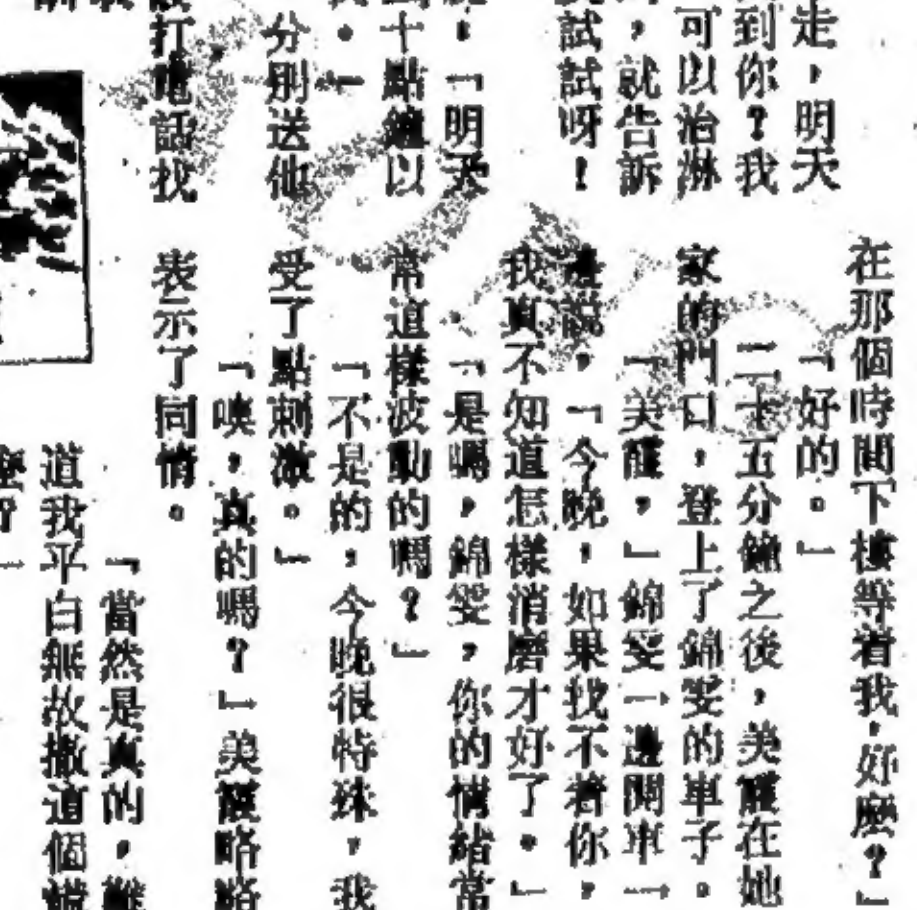 走，明天
到你？我
可以治淋
，就告訴
試試呀！
，「明天
十點鐘以
分別送他
打電話找
在那個時間下樓等着我，好麼？」
「好的。」
二十五分鐘之後，美醒在她
家的門口，登上了錦雯的車子。
「美醒，」錦雯一邊開車一
邊說，「今晚，如果找不着你，
我真不知道怎樣消磨才好了。」
「是嗎，錦雯，你的情緒常
常這樣波動的嗎？」
「不是的，今晚很特殊，我
受了點刺激。」
「噢，真的嗎？」美醒略略
表示了同情。
「當然是真的，難
道我平白無故撒這個謊